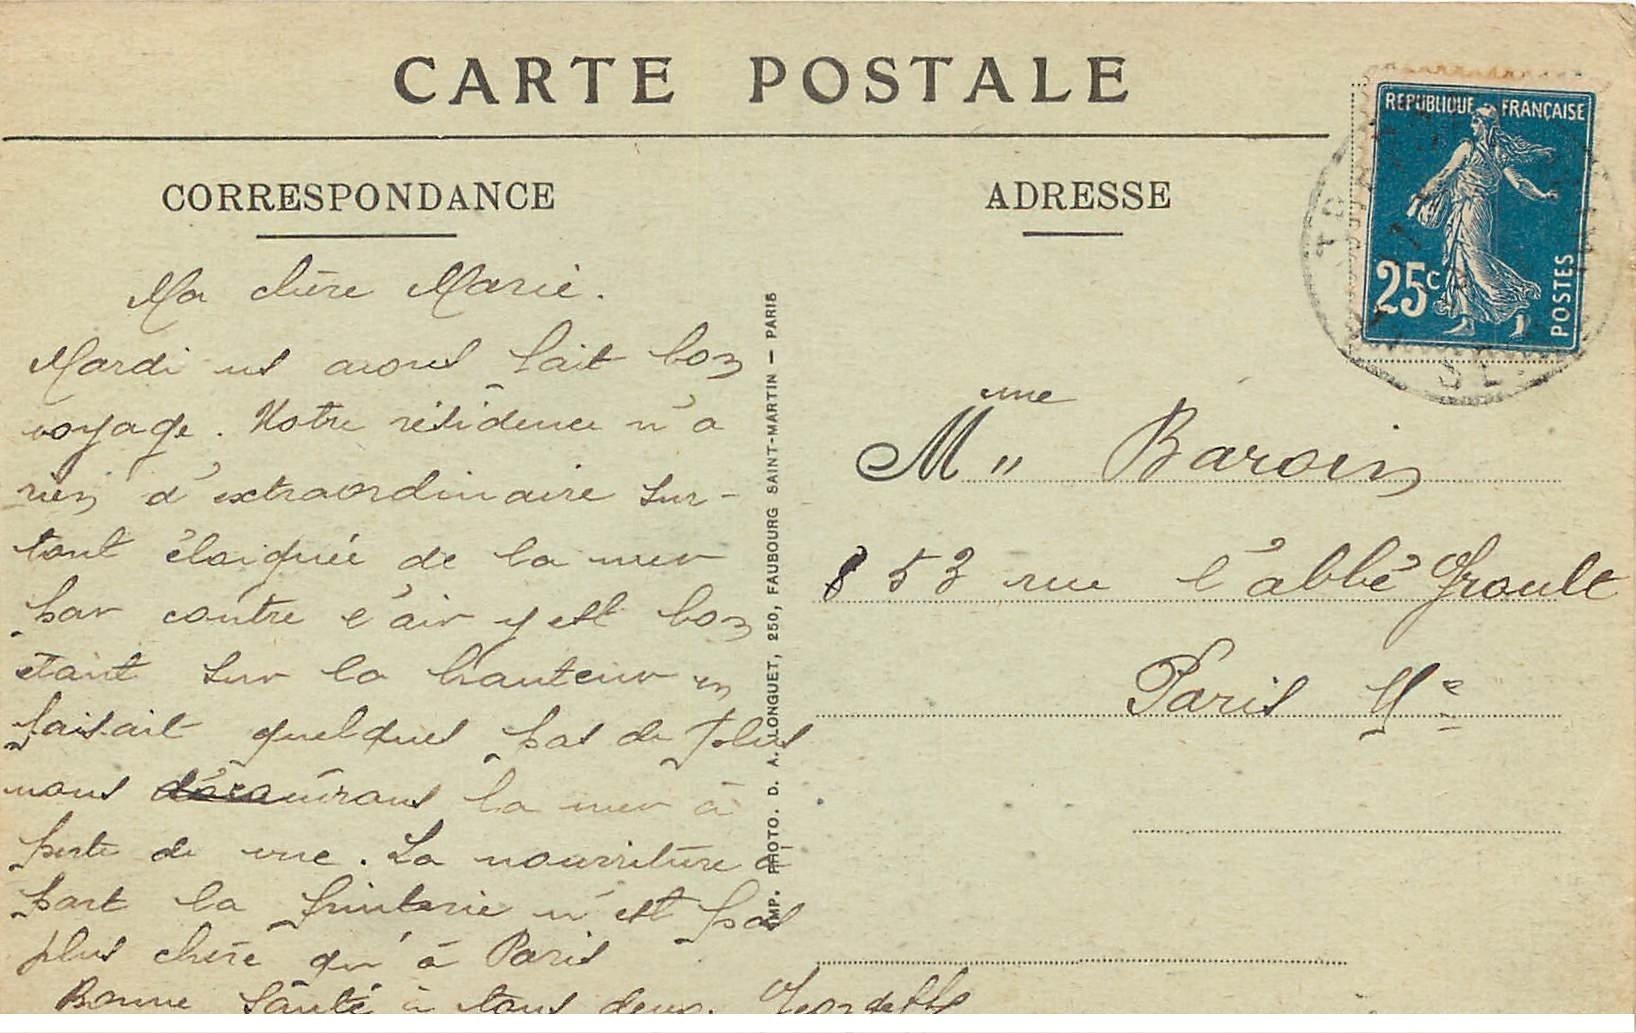 CARTE POSTALE
CORRESPONDANCE
Ma chère Marie.
Mardi ns avons fait bon
voyage. Notre résidence n'a
rien d'extraordinaire sur-
tout éloignée de la mer
par contre l'air y est bon
étant sur la hauteur en
faisait quelques pas de plus
nous découvrons la mer à
perte de vue. La nourriture à
part la fruiterie n'est pas
plus chère qu'à Paris
Bonne Santé à tous deux. Georgette
IMP. PHOTO. D. A. LONGUET, 250, FAUBOURG SAINT-MARTIN — PARIS
ADRESSE
REPUBLIQUE FRANÇAISE
25c
POSTES
Mme Baroin
53 rue l'abbé Groult
Paris